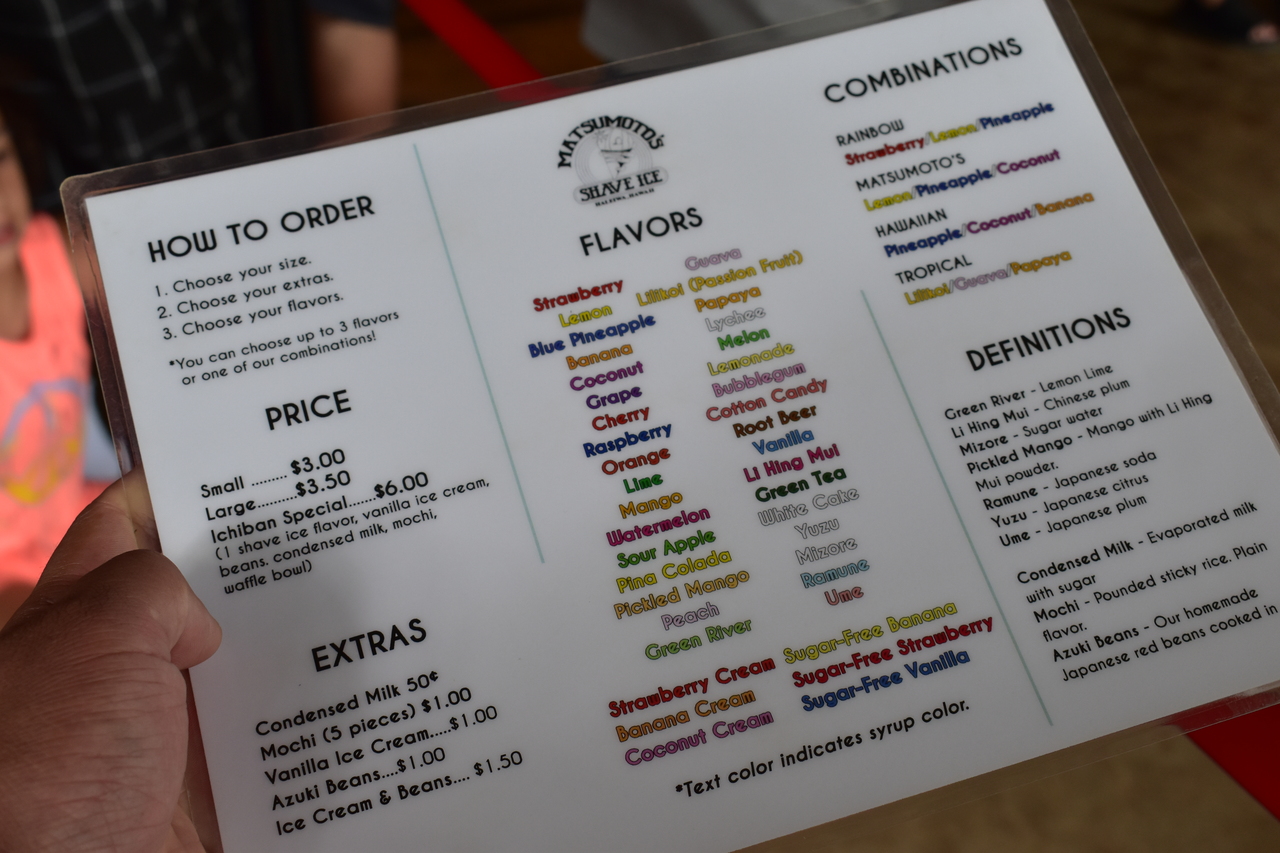 HOW TO ORDER
1. Choose your size.
2. Choose your extras.
3. Choose your flavors.
*You can choose up to 3 flavors
or one of our combinations!
PRICE
Small ........ $3.00
Large........$3.50
Ichiban Special.....$6.00
(1 shave ice flavor, vanilla ice cream,
beans, condensed milk, mochi,
waffle bowl)
EXTRAS
Condensed Milk 50¢
Mochi (5 pieces) $1.00
Vanilla Ice Cream.....$1.00
Azuki Beans....$1.00
Ice Cream & Beans.... $1.50
MATSUMOTO'S
SHAVE ICE
HALEIWA, HAWAII
FLAVORS
Strawberry
Lemon
Blue Pineapple
Banana
Coconut
Grape
Cherry
Raspberry
Orange
Lime
Mango
Watermelon
Sour Apple
Pina Colada
Pickled Mango
Peach
Green River
Guava
Lilikoi (Passion Fruit)
Papaya
Lychee
Melon
Lemonade
Bubblegum
Cotton Candy
Root Beer
Vanilla
Li Hing Mui
Green Tea
White Cake
Yuzu
Mizore
Ramune
Ume
Strawberry Cream
Banana Cream
Coconut Cream
Sugar-Free Banana
Sugar-Free Strawberry
Sugar-Free Vanilla
*Text color indicates syrup color.
COMBINATIONS
RAINBOW
Strawberry/Lemon/Pineapple
MATSUMOTO'S
Lemon/Pineapple/Coconut
HAWAIIAN
Pineapple/Coconut/Banana
TROPICAL
Lilikoi/Guava/Papaya
DEFINITIONS
Green River - Lemon Lime
Li Hing Mui - Chinese plum
Mizore - Sugar water
Pickled Mango - Mango with Li Hing
Mui powder.
Ramune - Japanese soda
Yuzu - Japanese citrus
Ume - Japanese plum
Condensed Milk - Evaporated milk
with sugar
Mochi - Pounded sticky rice. Plain
flavor.
Azuki Beans - Our homemade
Japanese red beans cooked in